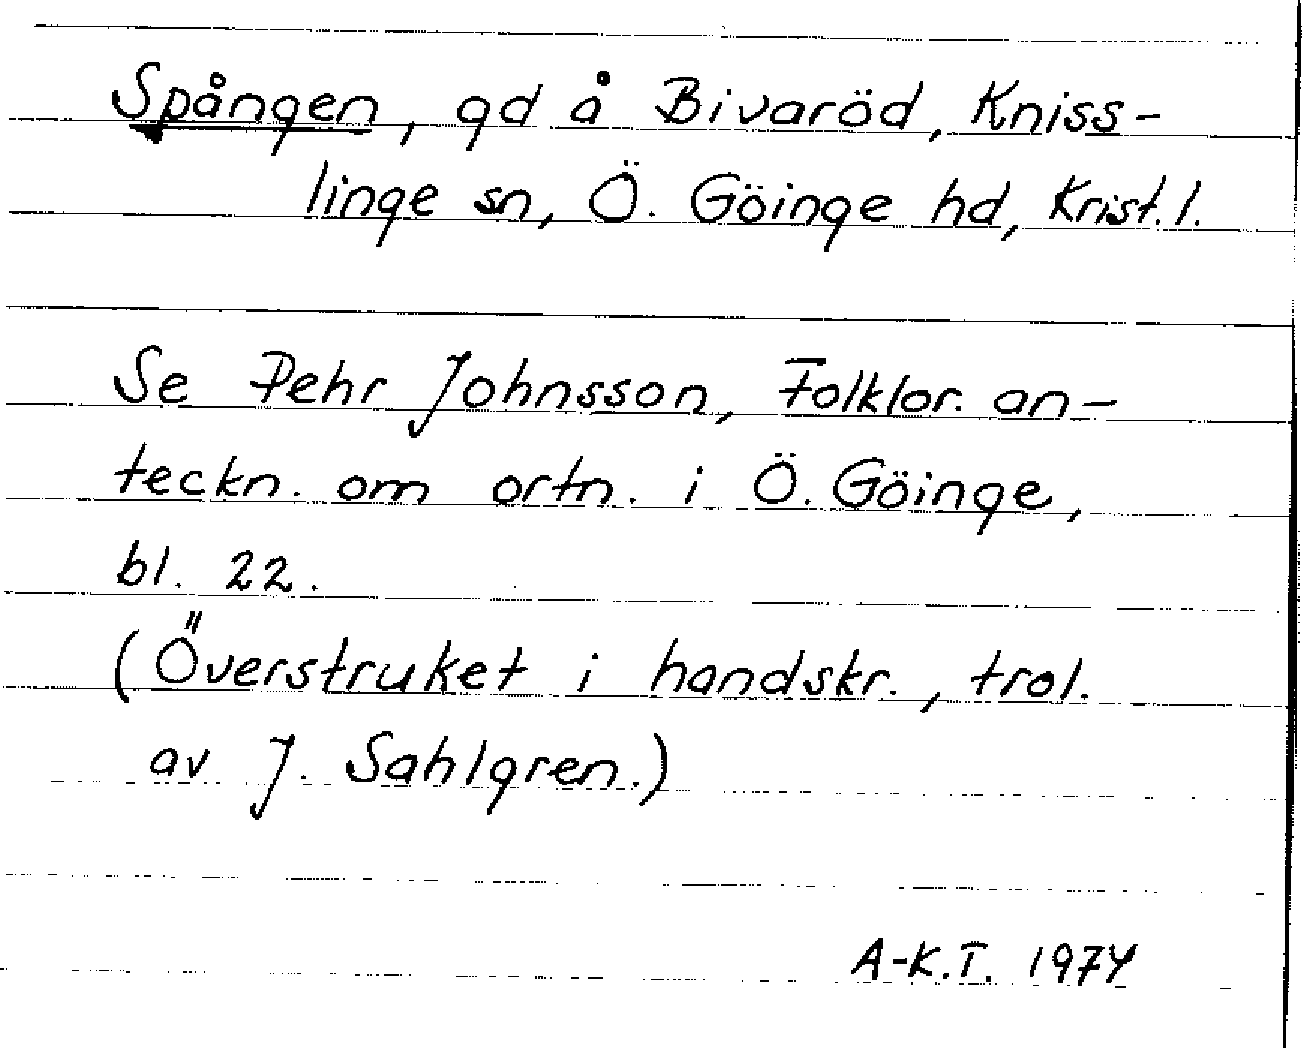 Spången, gd å Bivaröd, Kniss-
linge sn, Ö. Göinge hd, Krist. l.
Se Pehr Johnsson, Folklor. an-
teckn. om ortn. i Ö. Göinge,
bl. 22.
(Överstruket i handskr., trol.
av J. Sahlgren.)
A-K.T. 1974